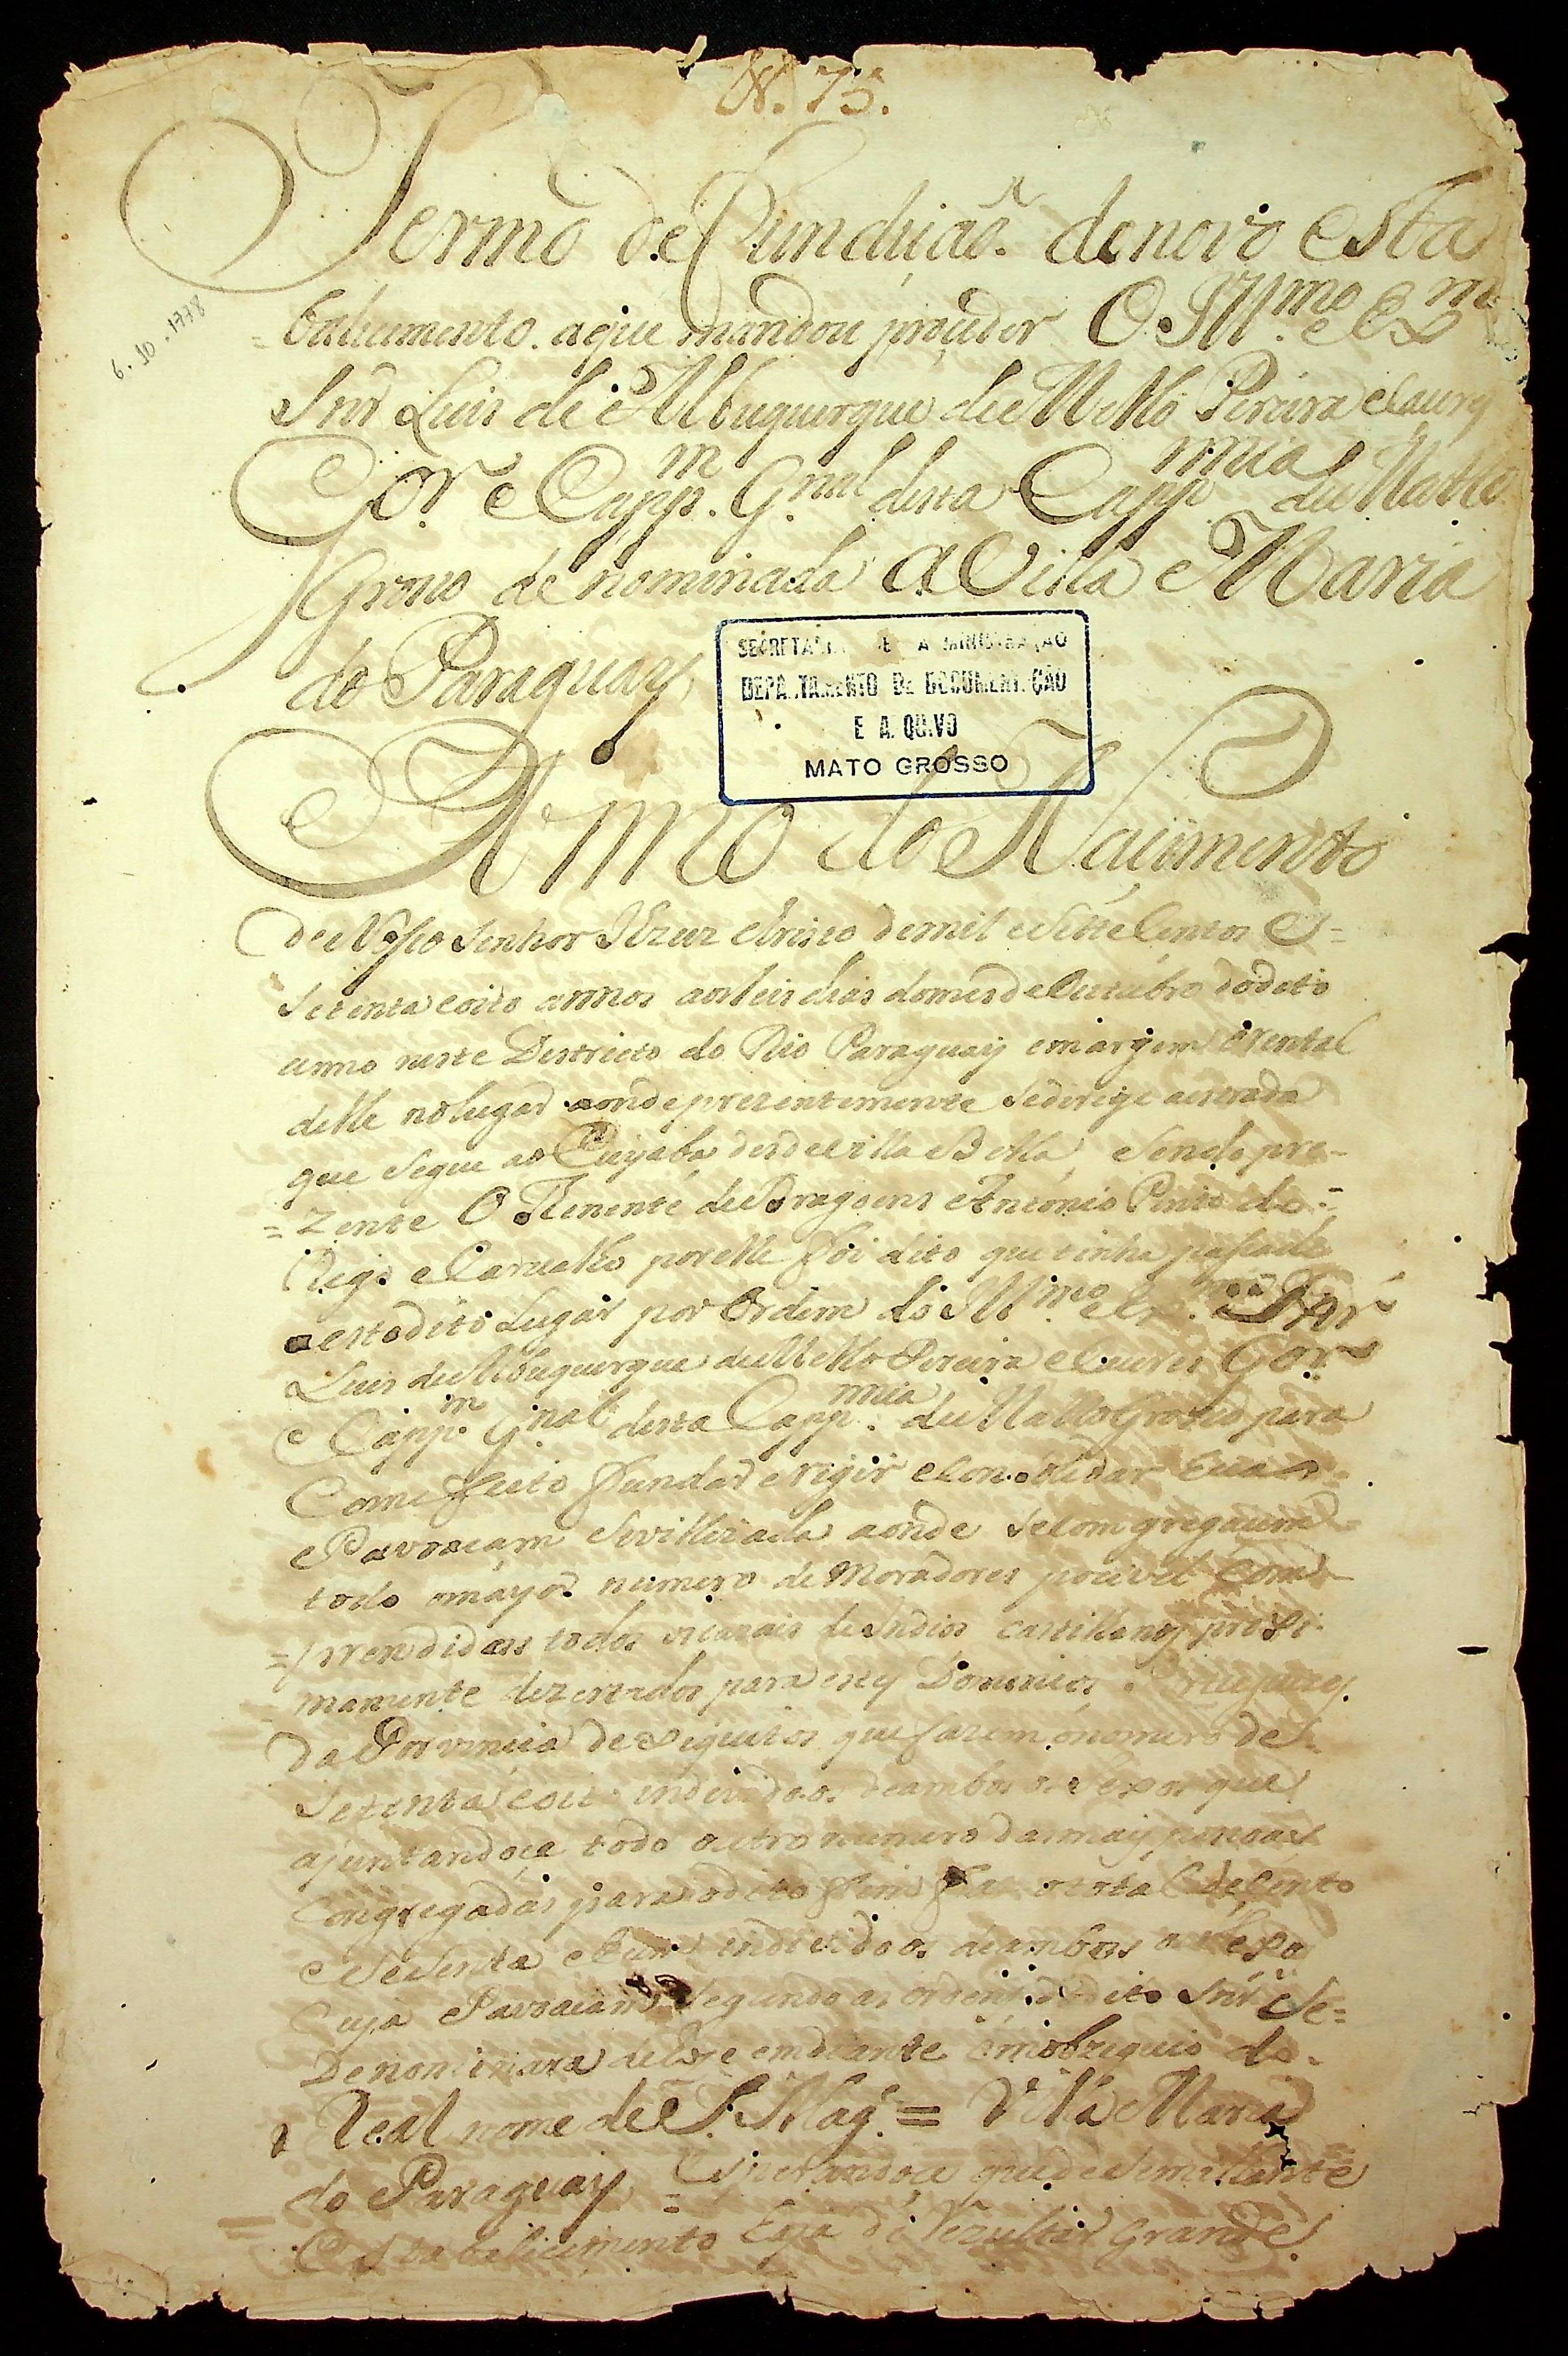 N. 75.
6.10.1778
Termo de Funduiaõ de novo esta
=beliumento. aque mandou proçuder O. Ill.mo e Ex.m
Snr Luis de Albuquerque de Mello Pereira eCaurs
Gor. e Capp.m G.nal desta Capp.mia de Matto
Groso de nominada A Villa Maria
do Paraguay,
SECRETARIA DE ADMINISTRAÇÃO
DEPARTAMENTO DE DOCUMENTAÇÃO
E ARQUIVO
MATO GROSSO
Anno do Naiimento
de Nosso Senhor JEzuz christo demil eSette Centos E=
Setenta eoito annos aos seis dias domes de Outubro dodito
anno neste Destricto do Rio Paraguay emargem orental
delle nolugar aonde prezentemente Sedirige aestrada
que Segue ao Cuyaba desde villa Bella, Sendo pre-
=zente O Tenente de Dragoens António Pinto do=
Rego eCarvalho porelle foi dito que tinha pasado
aestedito Lugar por Ordem do Ill.mo eEx.mo Snr
Luis de Albuquerque de Mello Pereira eCaceres Gor.
e Capp.m G.nal desta Capp.mia de Matto Groso para
Com effeito fundar erigir eConsolidar hua
Pavoacam Sevillizada aonde Secomgregacem
todo omayor numero de Moradores pocivel Com-
=prendidos todos os cazais de Indios castilhanos proxi-
mamente dezertados para estes Dominios Portuguezes
da Provincia de Xiquitos que fazem o nomuro de
Setenta eoito individoos deambos os Sexos que
ajuntandoçe todo outro numero das mays pesoas
Congregadas para odito fim faz o total de Cento
eSesenta ehum individoos deambos os Sexos
Cuja Pavoacam Segundo as ordens dodito Snr Se=
Denominara deHoje emdiante emobzequio do
Real nome de S. Mag.e = Villa Maria
do Paraguay = Esperandoçe quede Semilhante
Estabalicimento haja de Rezultar Grande